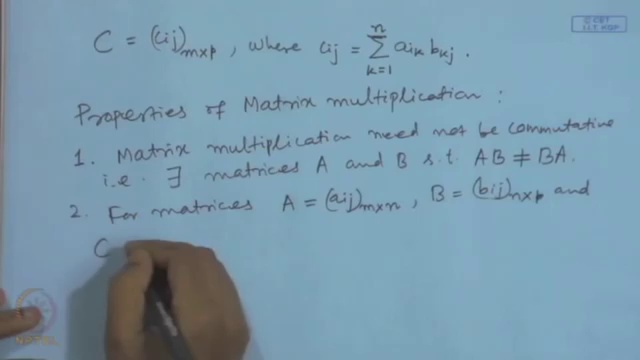 © CET
I.I.T. KGP
C = (cij)m×p , where cij = ∑ k=1 n aik bkj .
Properties of Matrix multiplication :
1. Matrix multiplication need not be commutative
i.e. ∃ matrices A and B s.t. AB ≠ BA.
2. For matrices A = (aij)m×n , B = (bij)n×p and
C
NPTEL